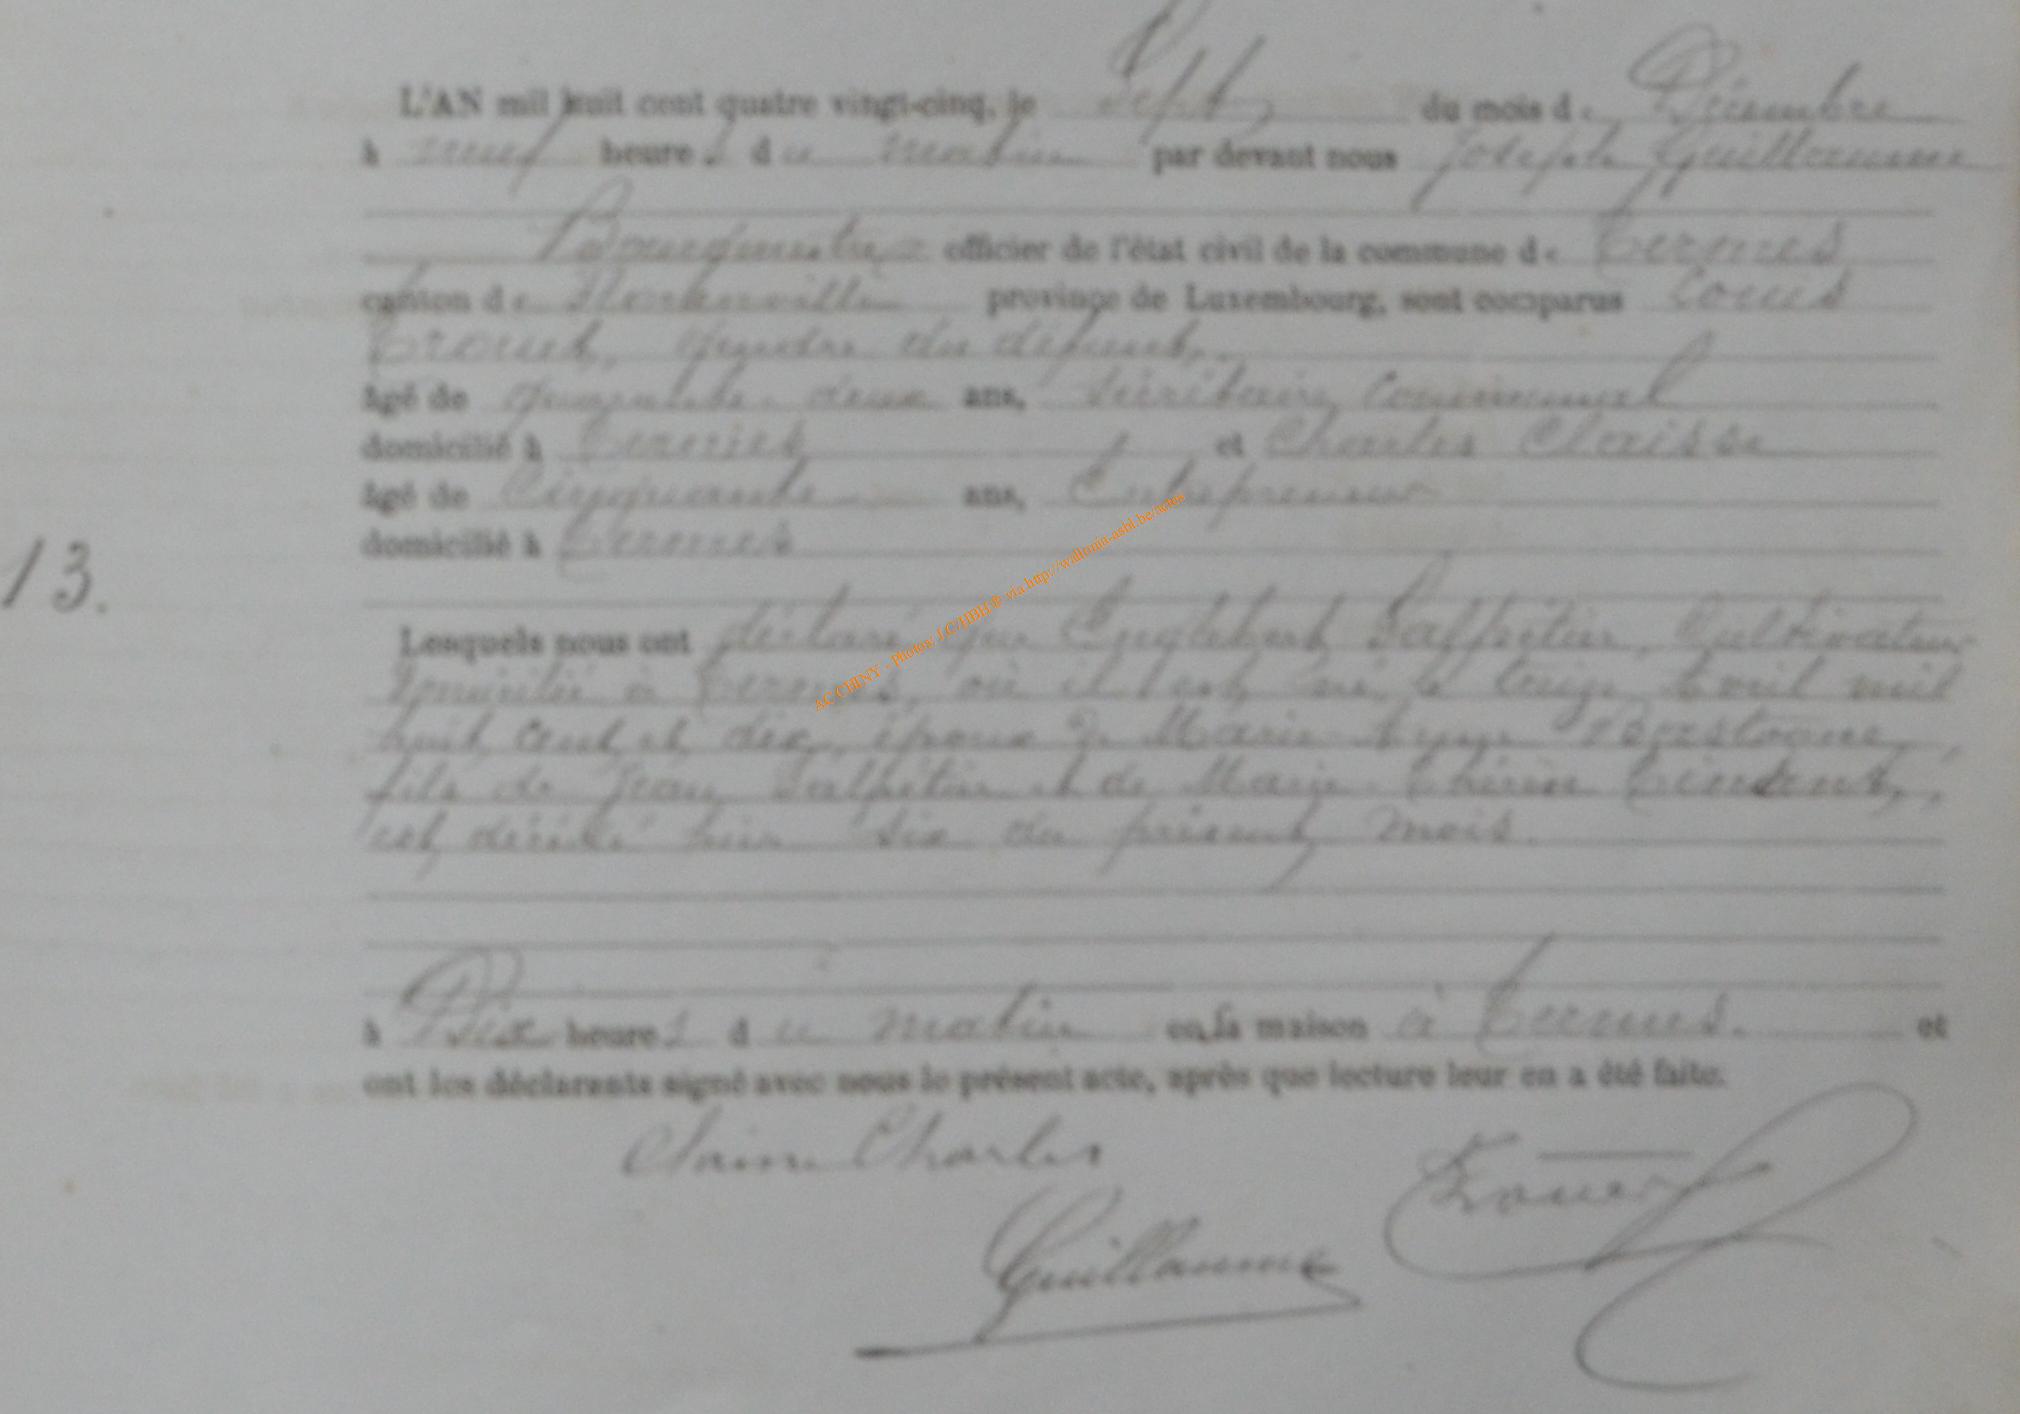 L'AN mil huit cent quatre vingt-cinq, le Sept du mois de Décembre
à neuf heures du matin par devant nous Joseph Guillaume
Bourgmestre officier de l'état civil de la commune de Termes
canton de Florenville province de Luxembourg, sont comparus Louis
Trouet, gendre du défunt,
âgé de quarante-deux ans, Secrétaire Communal
domicilié à Termes et Charles Claisse
âgé de Cinquante ans, Entrepreneur
domicilié à Termes
13.
Lesquels nous ont déclaré que Englebert Salpétier, Cultivateur
domicilié à Termes, où il est né le Avril mil
huit cent et dix, époux de Marie Bastogne,
fils de Jean Salpétier et de Marie-Thérèse
est décédé hier six du présent mois.
à Dix heures du matin en sa maison à Termes. et
ont les déclarants signé avec nous le présent acte, après que lecture leur en a été faite.
Charles
Guillaume
AC CHINY - Photos J.C/HBH @ via http://wallonia-asbl.be/actes